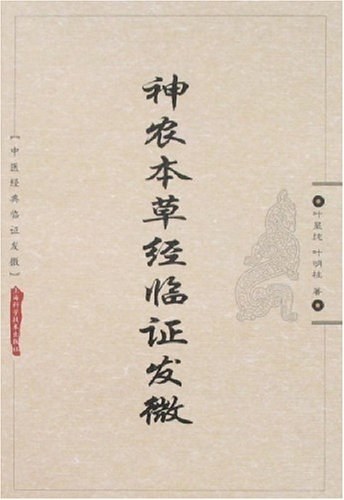 神农本草经临证发微
叶显纯 叶明柱 著
【中医经典临证发微】
上海科学技术出版社